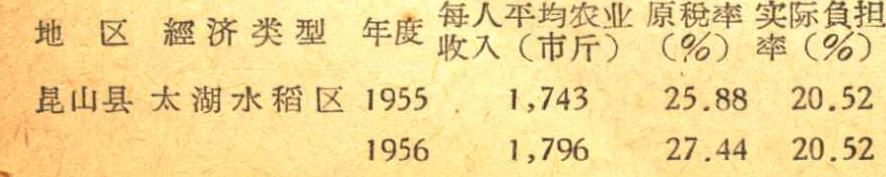 地区 經济类型 年度 每人平均农业收入（市斤） 原税率（%） 实际負担率（%）
昆山县 太湖水稻区 1955 1,743 25.88 20.52
1956 1,796 27.44 20.52